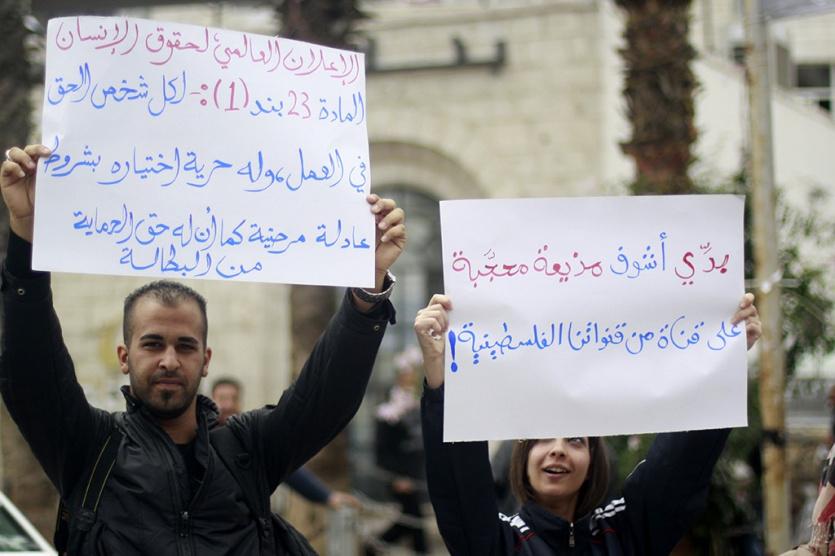 الإعلان العالمي لحقوق الإنسان
المادة 23 بند (1):- لكل شخص الحق
في العمل، وله حرية اختياره بشروط
عادلة مرضية كما أن له حق الحماية
من البطالة
بدّي أشوف مذيعة محجّبة
على قناة من قنواتنا الفلسطينية!